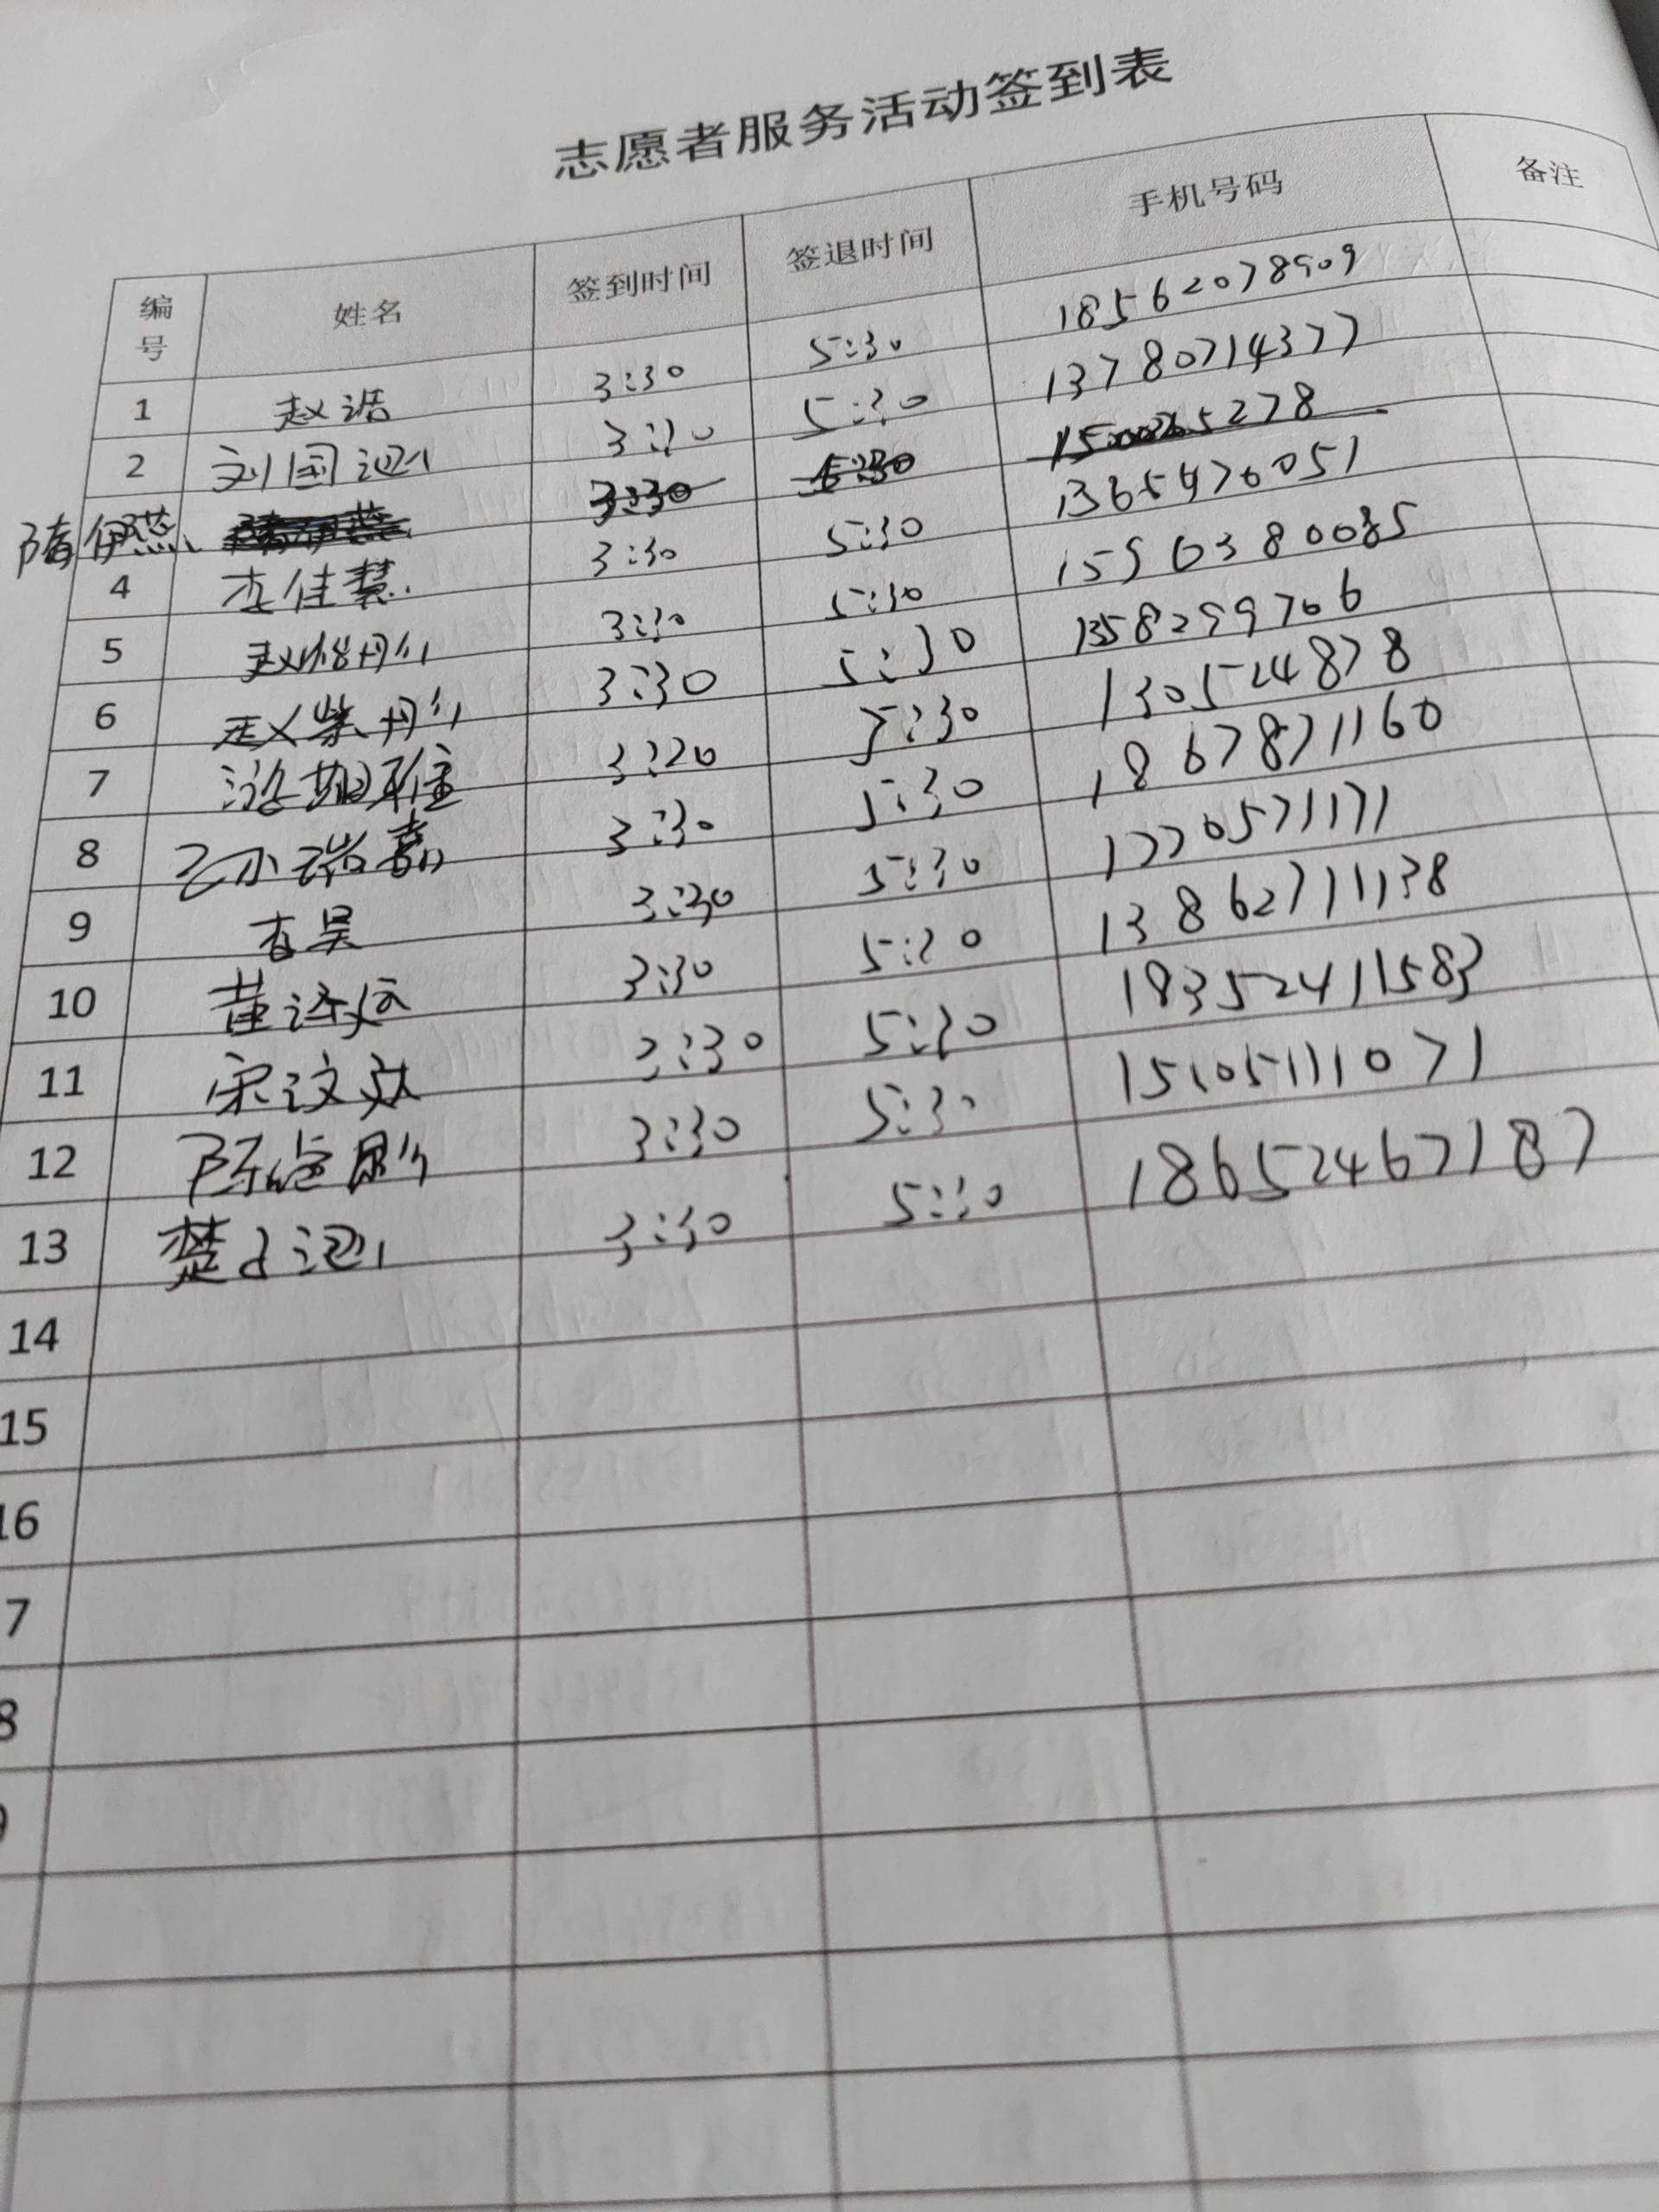 志愿者服务活动签到表
编号 姓名 签到时间 签退时间 手机号码 备注
1 赵浩 3:30 5:30 18562078909
2 刘国 3:30 5:30 13780714377
隋伊燕 3:30 5:30
4 李佳慧 3:30 5:30 1365476051
5 3:30 5:30 15963800
6 赵紫彤 3:30 5:30 1358299706
7 3:20 5:30 1305724878
8 3:30 5:30 18678711160
9 李昊 3:30 5:30 1770571171
10 董 3:30 5:20 13862711138
11 宋汶 3:30 5:20 18352411583
12 陈 3:30 5:30 15105111071
13 楚 3:30 5:30 18652467187
14
15
16
7
8
9